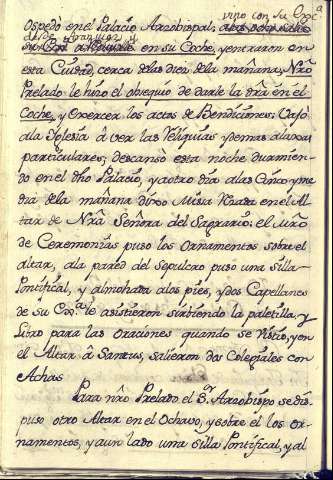 vino con su Exc.ª
ospedó en el Palacio Arzobispal;
desde Aranjuez y
en su Coche, y entraron en
esta Ciudad, cerca de las diez de la mañana, Nrō
Prelado le hizo el obsequio de darle la dra en el
Coche, y exercer los actos de Bendiciones; Vajó
ala Iglesia à ver las Reliquias y demas alaxas
particulares; descansò esta noche durmien-
do en el dho Palacio, y a otro dia alas Cinco y me
dia de la mañana dixo Misa Rezada en el Al
tar de Nrā Señora del Sagrario: el Mrō
de Ceremonias puso los Ornamentos sobre el
altar, ala pared del Sepulcro puso una Silla
Pontifical, y almohada alos pies, y dos Capellanes
de su Ex.ª le asistieron sirbiendo la paletilla, y
Libro para las Oraciones quando se Vistio, y en
el Altar à Sanctus, salieron dos Colegiales con
Achas
Para nrō Prelado el S.r Arzobispo se dis-
puso otro Altar en el Ochavo, y sobre el los Or-
namentos, y aun lado una Silla Pontifical, y al